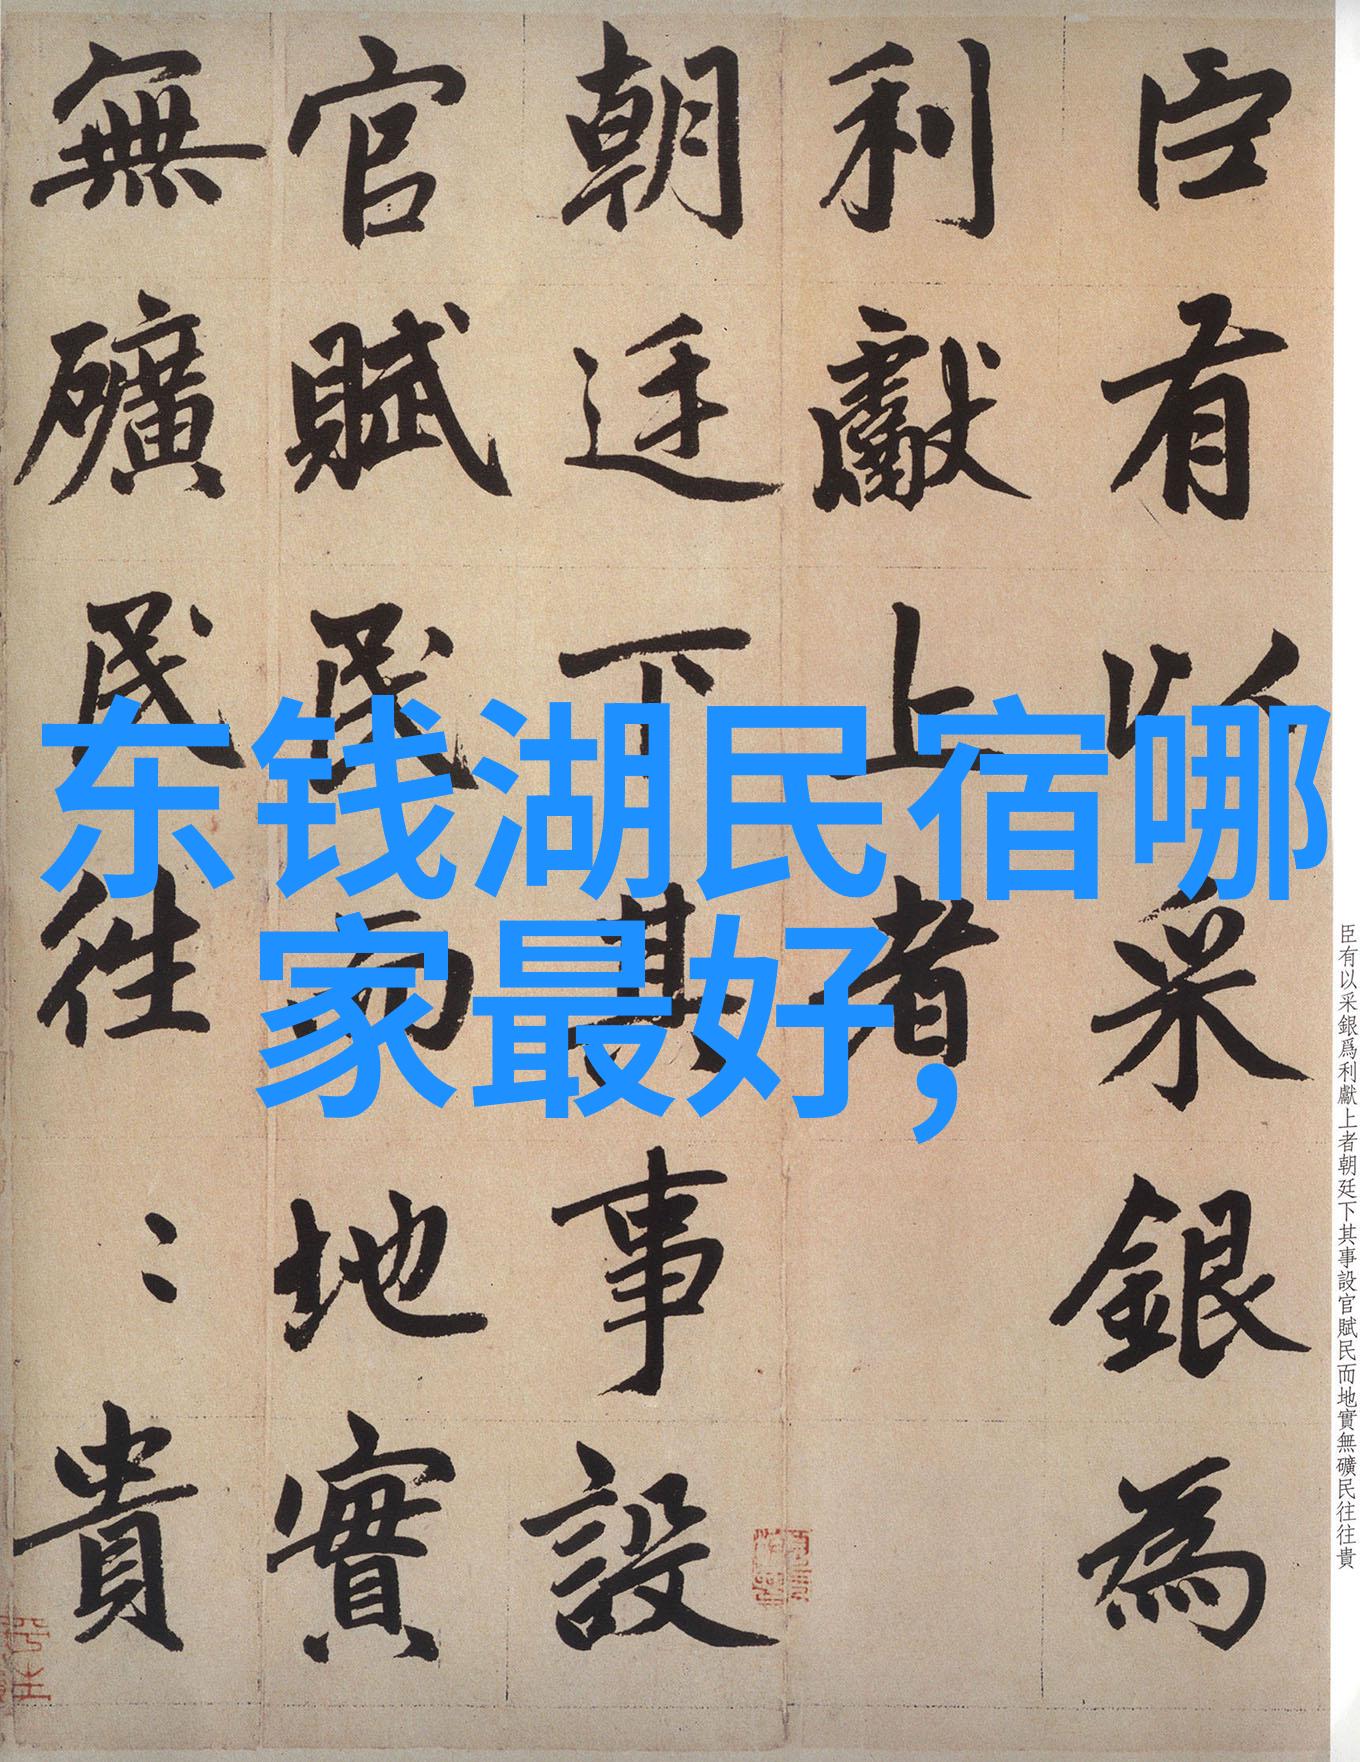 臣有以采銀為
利獻上者
朝廷下其事設
官賦民而地實
無礦民往〻貴
东钱湖民宿哪
家最好，
臣有以采銀爲利獻上者朝廷下其事設官賦民而地實無礦民往往貴